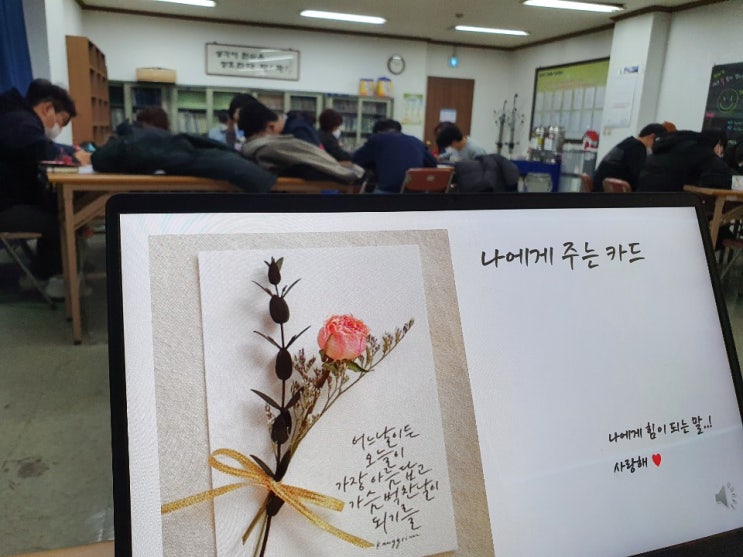 나에게 주는 카드
어느날이든
오늘이
가장 아름답고
가슴 벅찬날이
되기를
나에게 힘이 되는 말..!
사랑해 ♥